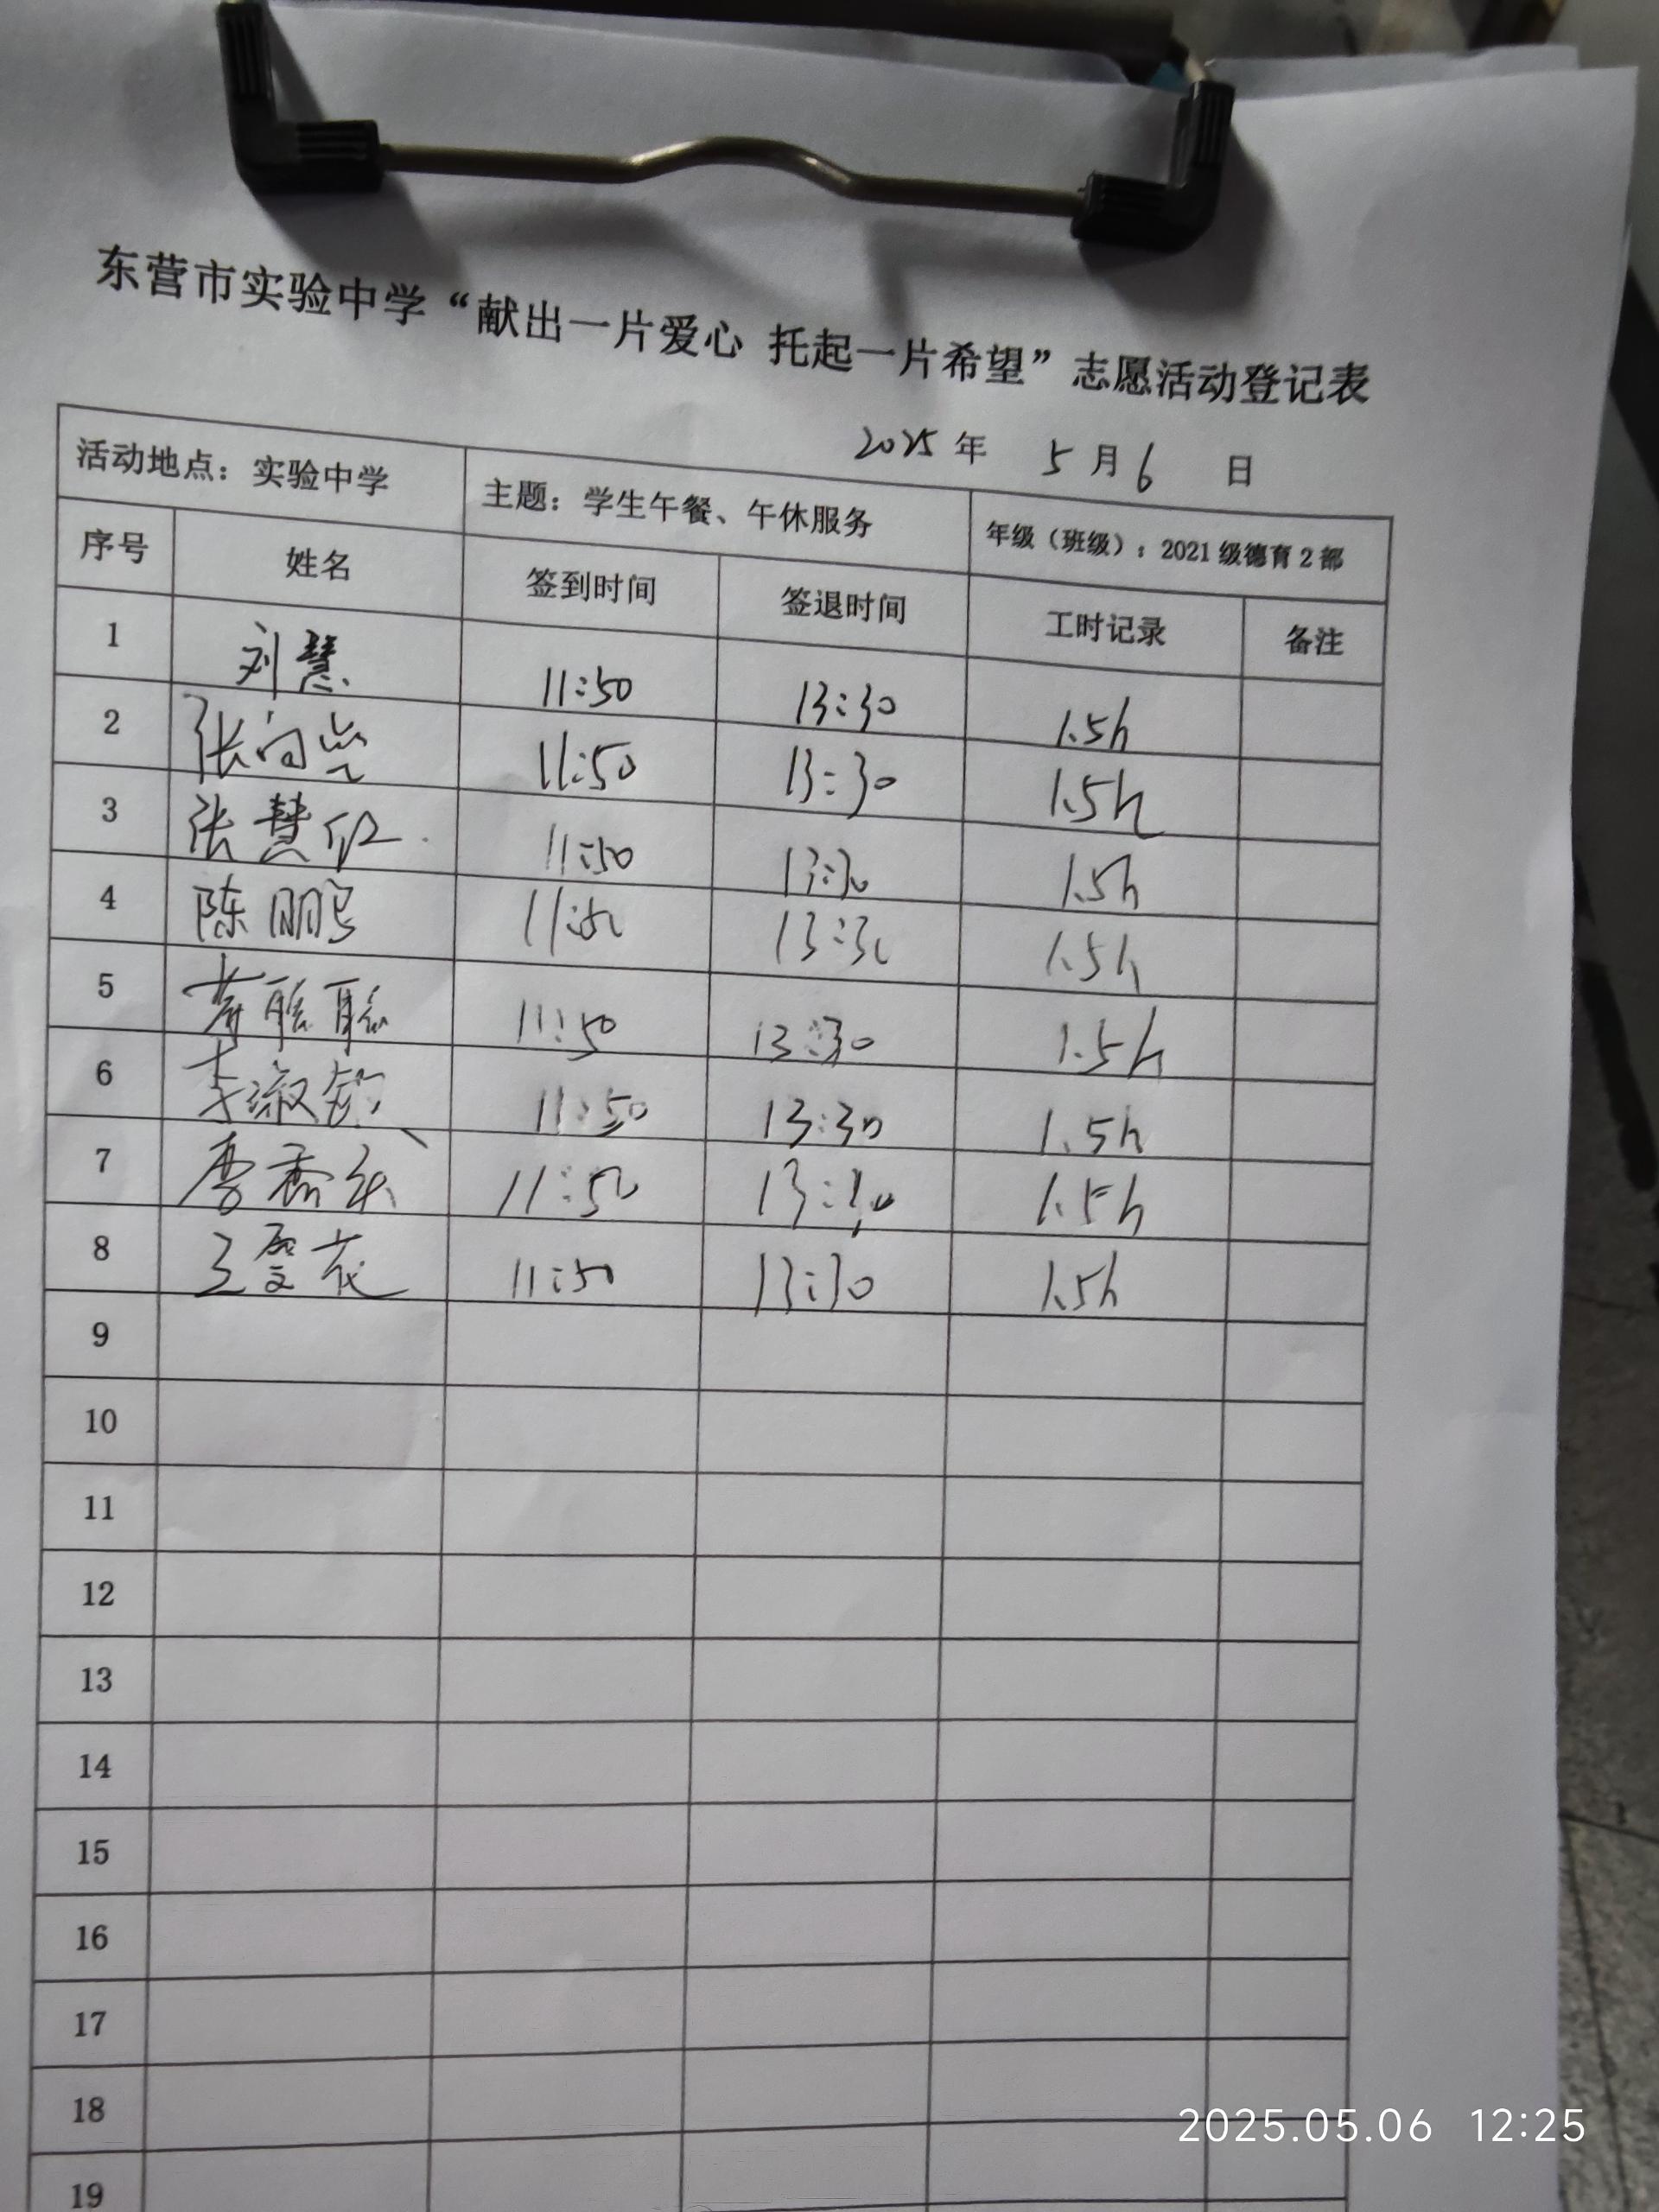 东营市实验中学“献出一片爱心 托起一片希望”志愿活动登记表
2025年 5月6 日
活动地点：实验中学 主题：学生午餐、午休服务 年级（班级）：2021级德育2部
序号 姓名 签到时间 签退时间 工时记录 备注
1 刘慧 11:50 13:30 1.5h
2 张向 11:50 13:30 1.5h
3 张慧红 11:50 13:30 1.5h
4 陈鹏 11:50 13:30 1.5h
5 聪聪 11:50 13:30 1.5h
6 李淑 11:50 13:30 1.5h
7 11:50 13:30 1.5h
8 王 花 11:50 13:30 1.5h
9
10
11
12
13
14
15
16
17
18
19
2025.05.06 12:25